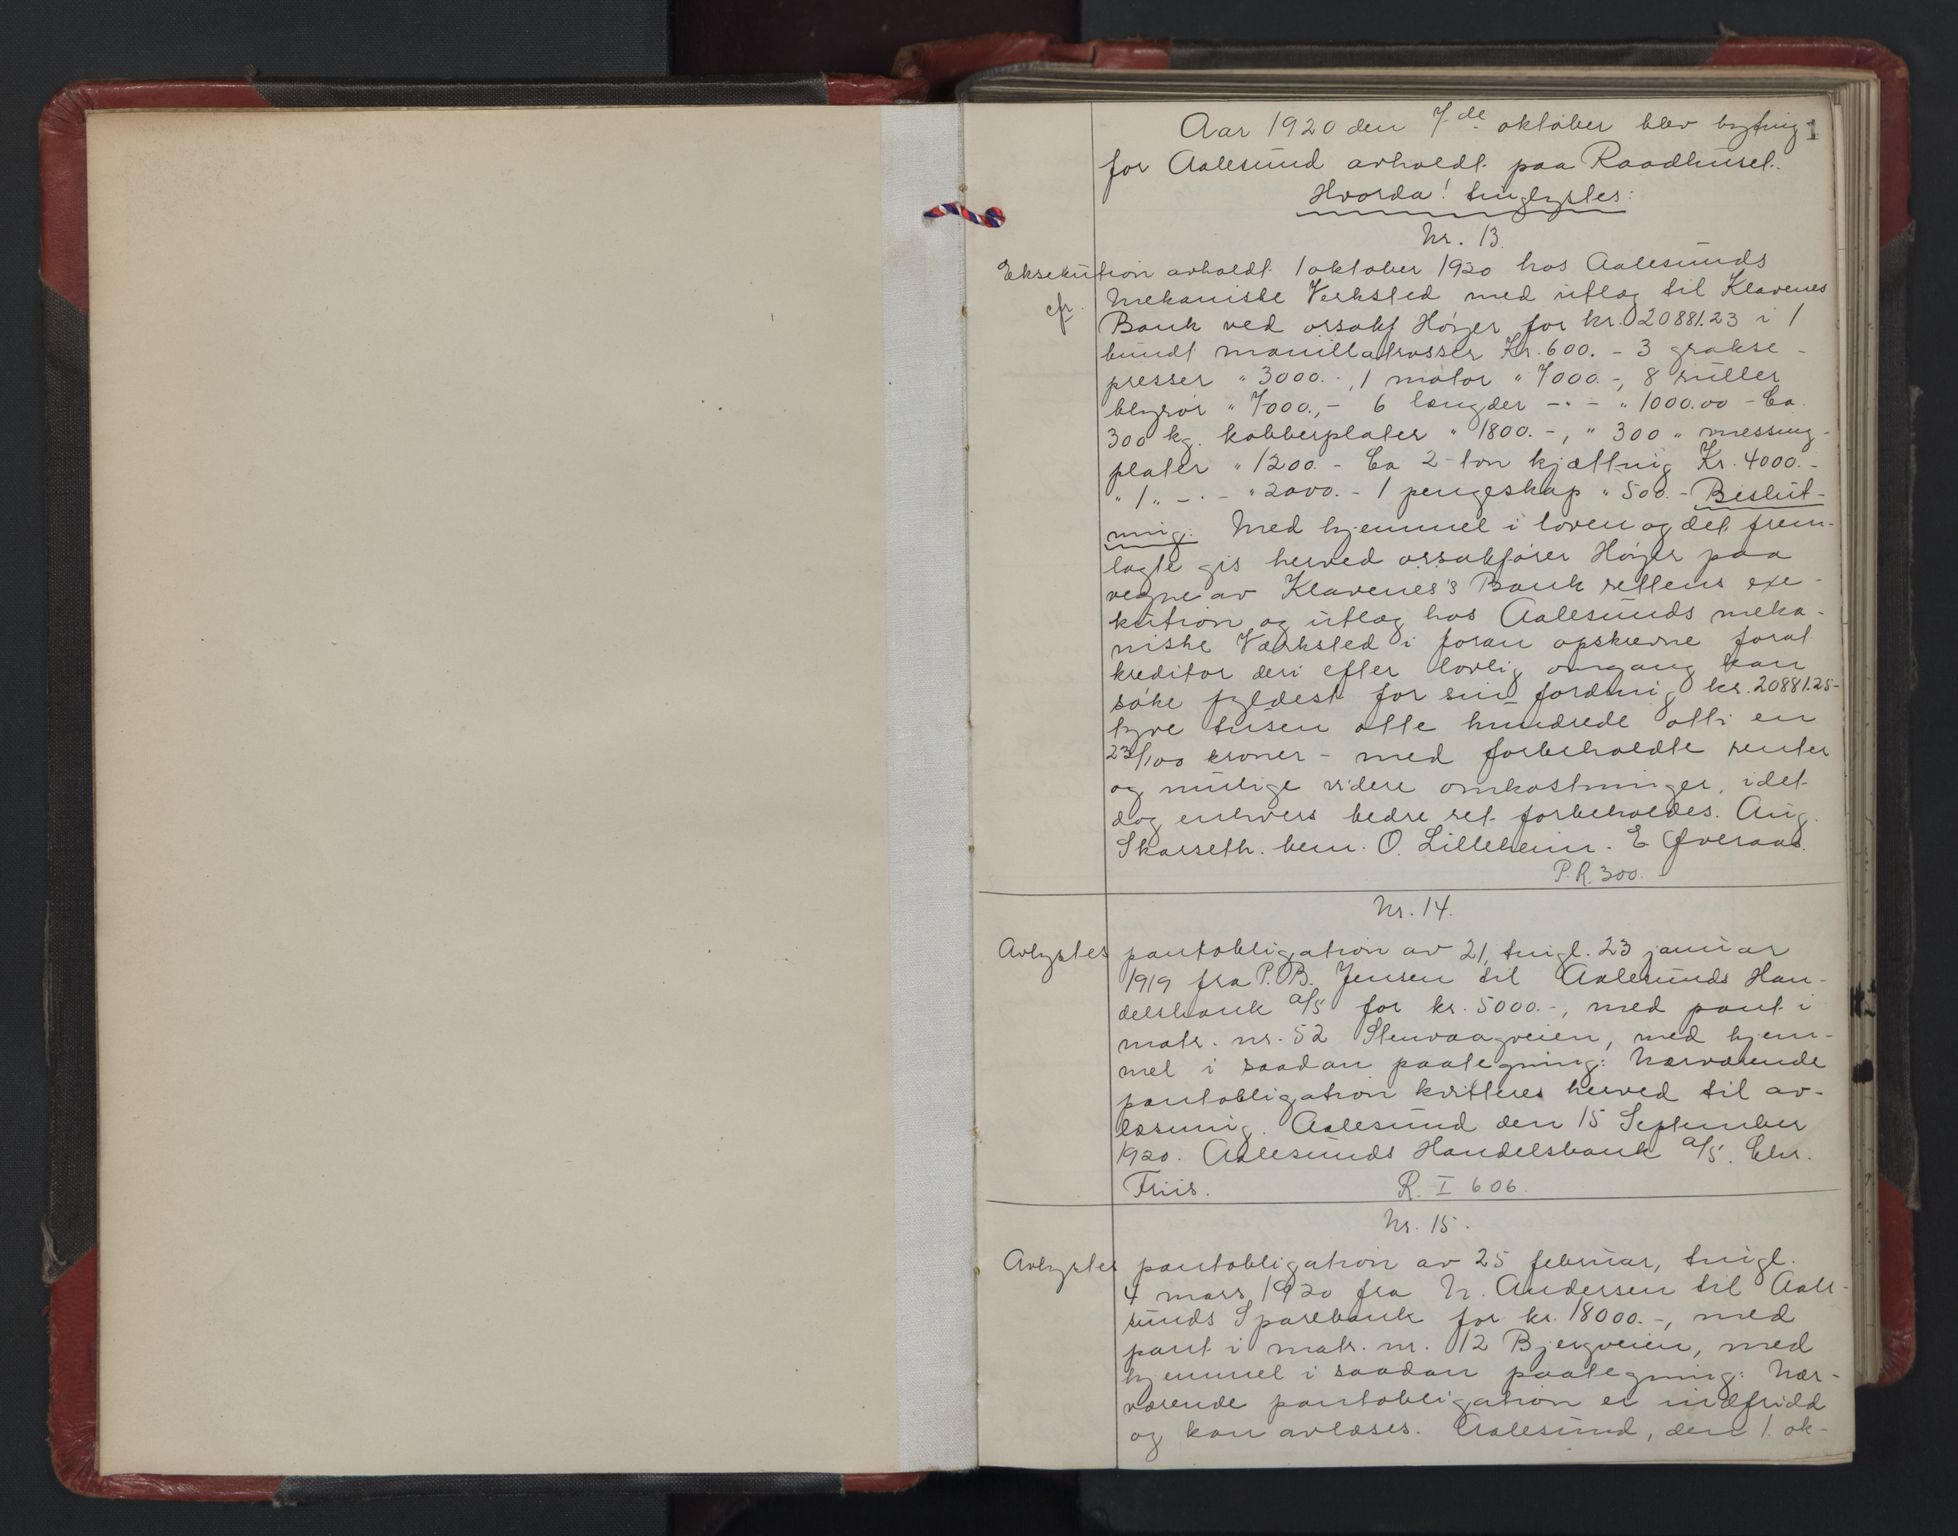 Aar 1920 den 7de oktober blev byting 1
for Aalesund avholdt paa Raadhuset.
Hvorda! tinglystes:
Nr. 13.
Eksekution avholdt 1 oktober 1920 hos Aalesunds
cfr. Mekaniske Verksted med utlæg til Klavenes
Bank ved orsakf Høyer for kr. 20881.23 i 1
bundt manillatrosser Kr. 600. - 3
presser " 3000. -, 1 motor " 7000 -, 8 ruller
blyrør " 7000,- 6 længder - " - " 1000.00 - Ca.
300 kg. kobberplater " 1800. -, " 300 " messing-
plater " 1200. - Ca 2 ton kjætting Kr. 4000. -
" 1 " - " - " 2000. - 1 pengeskap " 500. - Beslut-
ning: Med hjemmel i loven og det frem-
lagte gis herved orsakfører Høyer paa
vegne av Klavenes's Bank rettens exe-
kution og utlæg hos Aalesunds meka-
niske Værksted i foran opskrevne forat
kreditor deri efter lovlig omgang kan
søke fyldest for sin fordring kr. 20881.25-
tyve tusen otte hundrede otti en
23/100 kroner - med forbeholdte renter
og mulige videre omkostninger, idet
dog enhvers bedre ret forbeholdes. Aug.
Skarseth. bem. O. Lilleheim. E Øveraas.
P.R. 300.
Nr. 14.
Avlystes pantobligation av 21, tingl. 23 januar
1919 fra P.B. Jensen til Aalesunds Han-
delsbank a/s for kr. 5000.-, med pant i
matr. nr. 52 Stenvaagveien, med hjem-
mel i saadan paategning: Nærværende
pantobligation kvitteres herved til av-
læsning. Aalesund den 15 September
1920. Aalesunds Handelsbank a/s. Chr.
Friis. R. I 606.
Nr. 15.
Avlystes pantobligation av 25 februar, tingl.
4 mars 1920 fra N. Andersen til Aale-
sunds Sparebank for kr. 18000.-, med
pant i matr. nr. 12 Bjergveien, med
hjemmel i saadan paategning: Nær-
værende pantobligation er indfridd
og kan avlæses. Aalesund, den 1. ok-